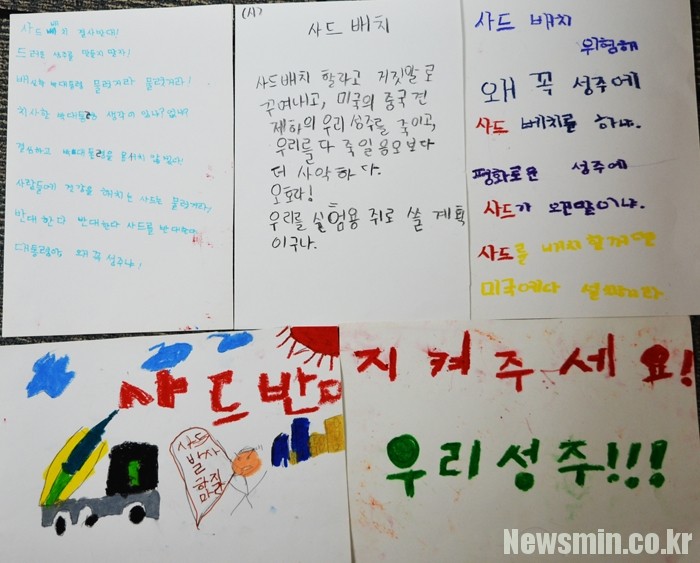 사드 배치 결사반대!
드러운 성주를 만들지 말자!
박대통령 물러가라 물러가라!
치사한 박대통령 생각이 있나? 없나?
박대통령을 용서치 않겠다!
사람들에게 건강을 해치는 사드는 물러가라!
반대한다 반대한다 사드를 반대한다
대통령아 왜 꼭 성주냐!
(A)
사드 배치
사드배치 할라고 거짓말로
꾸며내고, 미국의 중국 견
제하의 우리 성주를 죽이고,
우리를 다 죽일 음모보다
더 사악하다.
오호라!
우리를 실험용 쥐로 쓸 계획
이구나.
사드 배치
위험해
왜 꼭 성주에
사드 베치를 하냐.
평화로운 성주에
사드가 왼말이냐.
사드를 배치할꺼면
미국에다 설치해라
사드반대
사드
발사
함 죌
지켜주세요!
우리성주!!!
Newsmin.co.kr